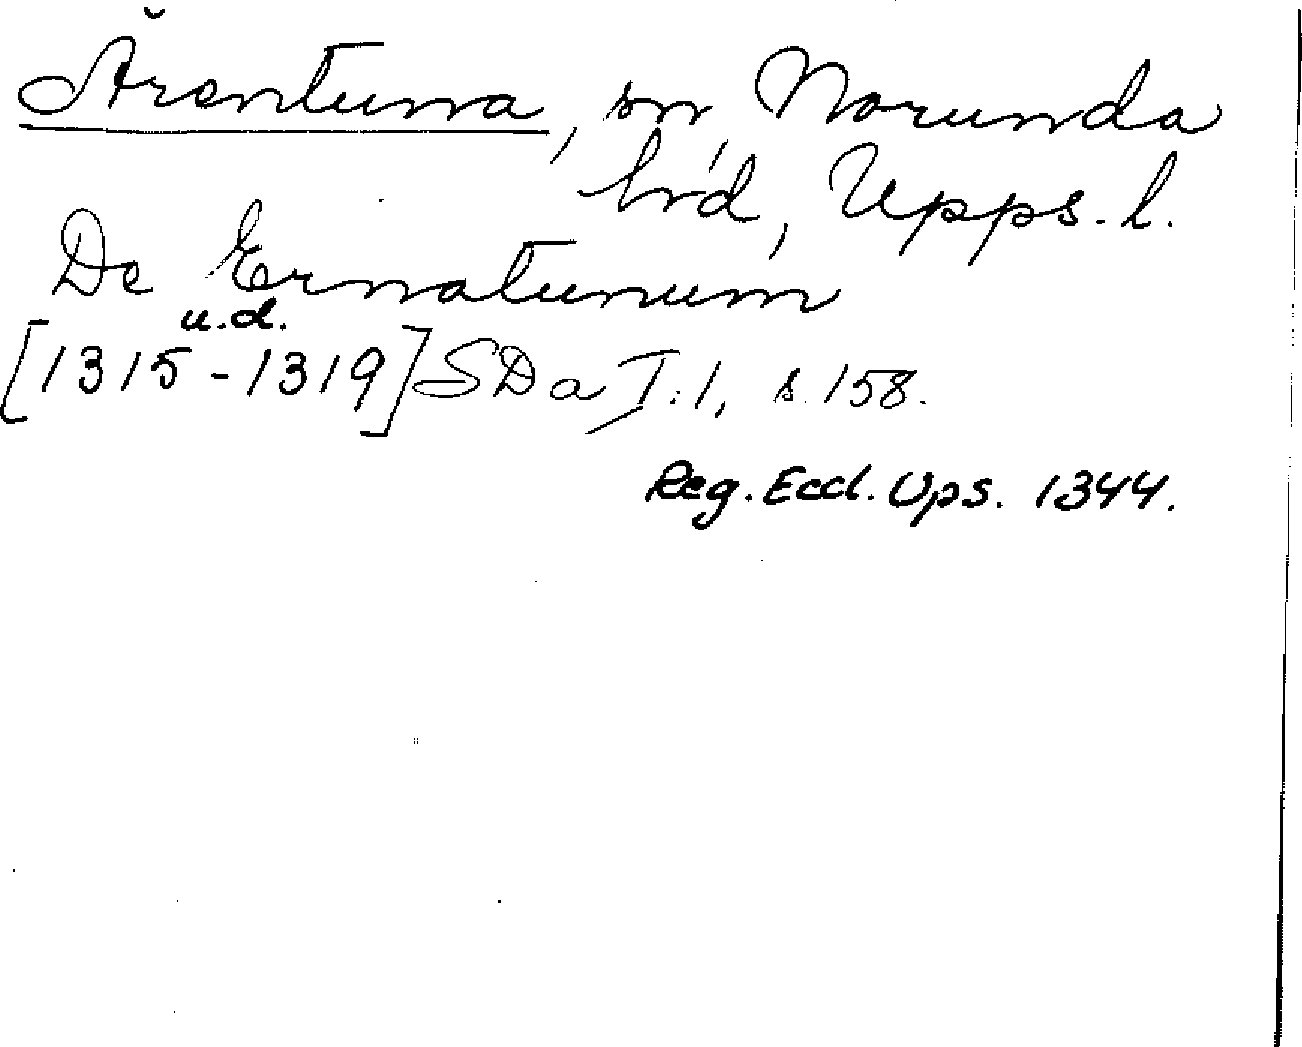 Ärentuna, sn, Norunda
hrd, Upps. l.
De Ernatunum
u.d.
[1315-1319] SDa I:1, s. 158.
Reg. Eccl. Ups. 1344.